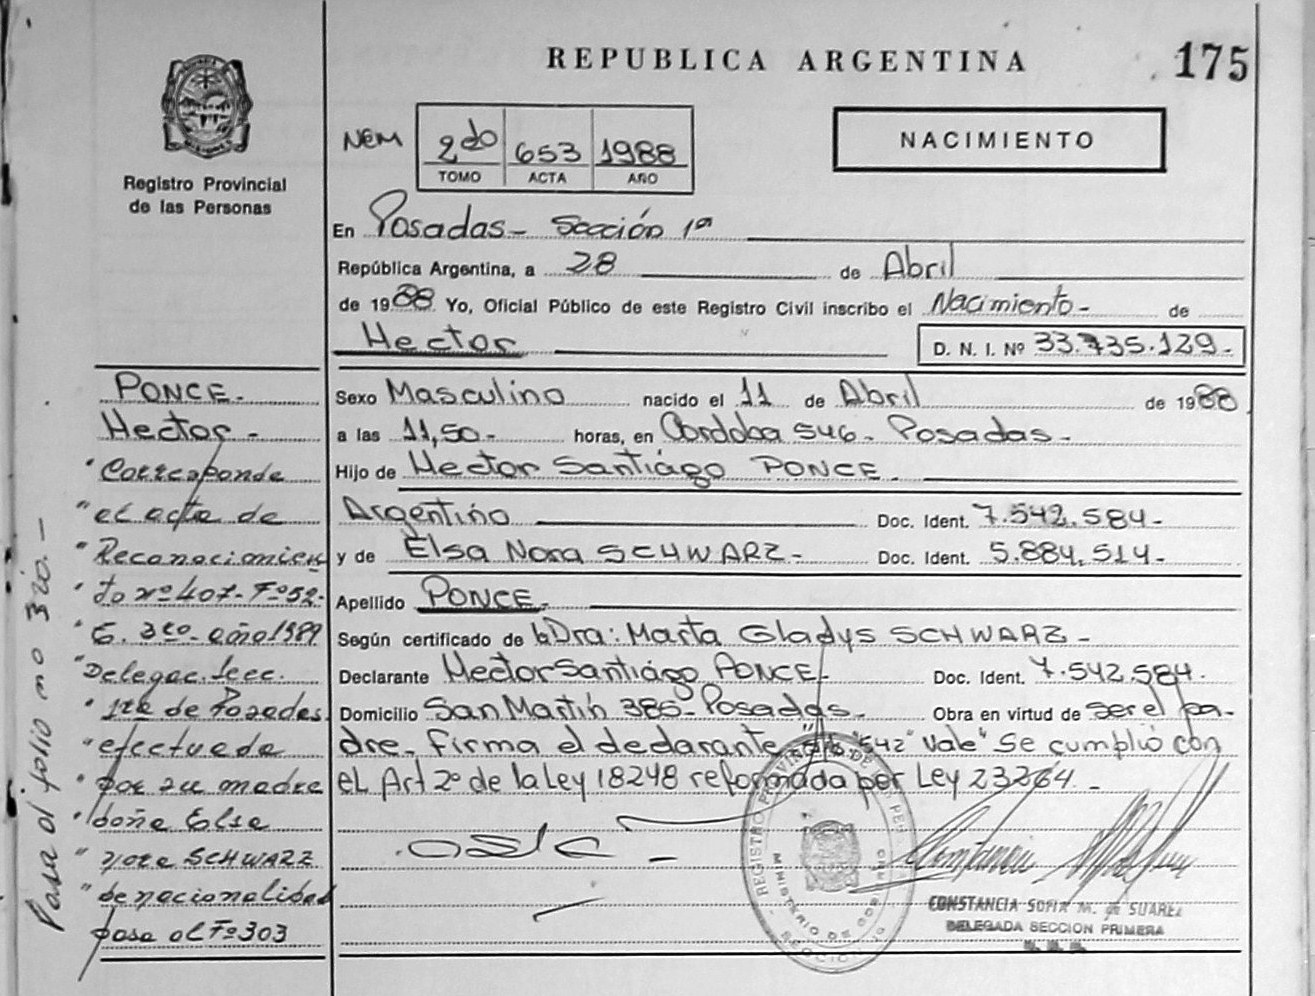 REPUBLICA ARGENTINA
175
NEM
2do 653 1988
TOMO ACTA AÑO
NACIMIENTO
Registro Provincial
de las Personas
En Posadas - Sección 1ª
República Argentina, a 28 de Abril
de 1988 Yo, Oficial Público de este Registro Civil inscribo el Nacimiento - de
Hector
D. N. I. Nº 33.735.129.-
Sexo Masculino nacido el 11 de Abril de 1988
a las 11,50.- horas, en Córdoba 546 - Posadas -
Hijo de Hector Santiágo PONCE
Argentino Doc. Ident. 7.542.584-
y de Elsa Nora SCHWARZ - Doc. Ident. 5.884.514-
Apellido PONCE.
Según certificado de la Dra: Marta Gladys SCHWARZ -
Declarante Hector Santiágo PONCE - Doc. Ident. 7.542.584.
Domicilio San Martín 385 - Posadas - Obra en virtud de ser el pa-
dre - Firma el declarante "542" Vale" Se cumplió con
el Art 2º de la Ley 18248 reformada por Ley 23264. -
PONCE -
Hector -
Corresponde
"el acta de
"Reconocimien
to nº 407 - Fº 52-
"T. 3ro - año 1989
"Delegac. Secc.
1ra de Posadas
"efectuada
"por su madre
"doña Elsa
"Nora SCHWARZ
"de nacionalidad
pasa al Fº 303
Pasa al folio nº 320.-
CONSTANCIA SOFIA M. de SUAREZ
DELEGADA SECCION PRIMERA
REGISTRO PROVINCIAL DE
MINISTERIO DE GOBIERNO